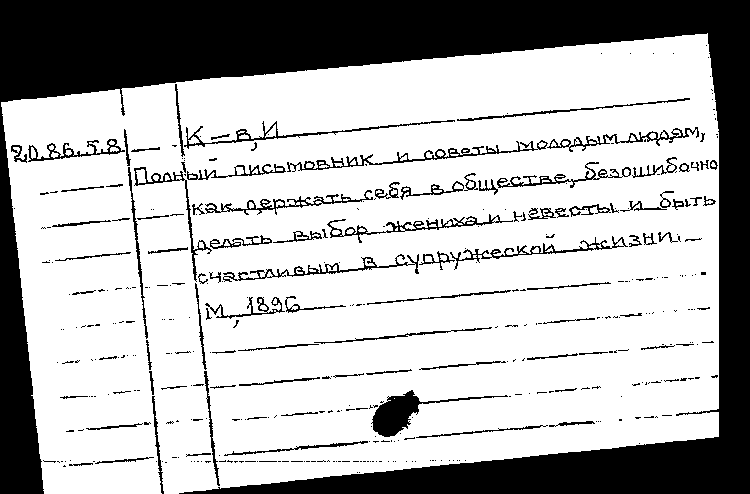 20.86.5.8
К-в, И
Полный письмовник и советы молодым людям,
как держать себя в обществе, безошибочно
делать выбор жениха и невесты и быть
счастливым в супружеской жизни. –
М., 1896